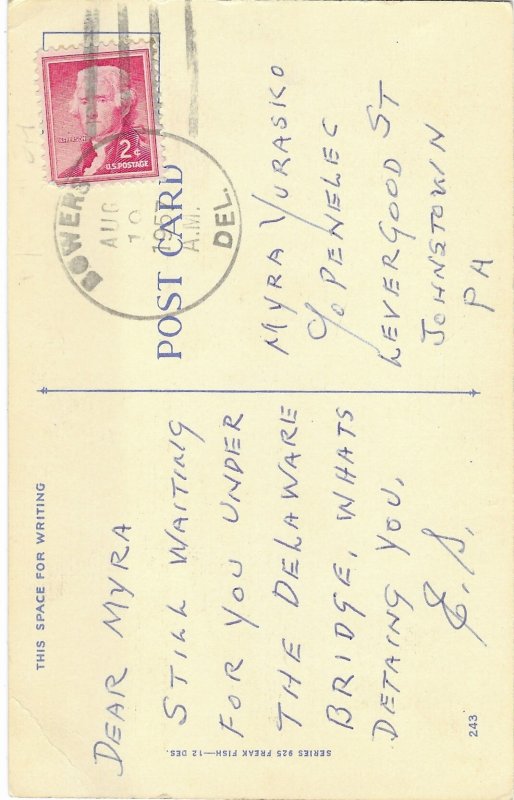 THIS SPACE FOR WRITING
DEAR MYRA
STILL WAITING
FOR YOU UNDER
THE DELAWARE
BRIDGE, WHATS
DETAING YOU,
E. S.
243
SERIES 925 FREAK FISH—12 DES.
POST CARD
JEFFERSON
2¢
U.S. POSTAGE
BOWERS
DEL.
AUG
19
A.M.
MYRA YURASKO
c/o PENELEC
LEVERGOOD ST
JOHNSTOWN
PA